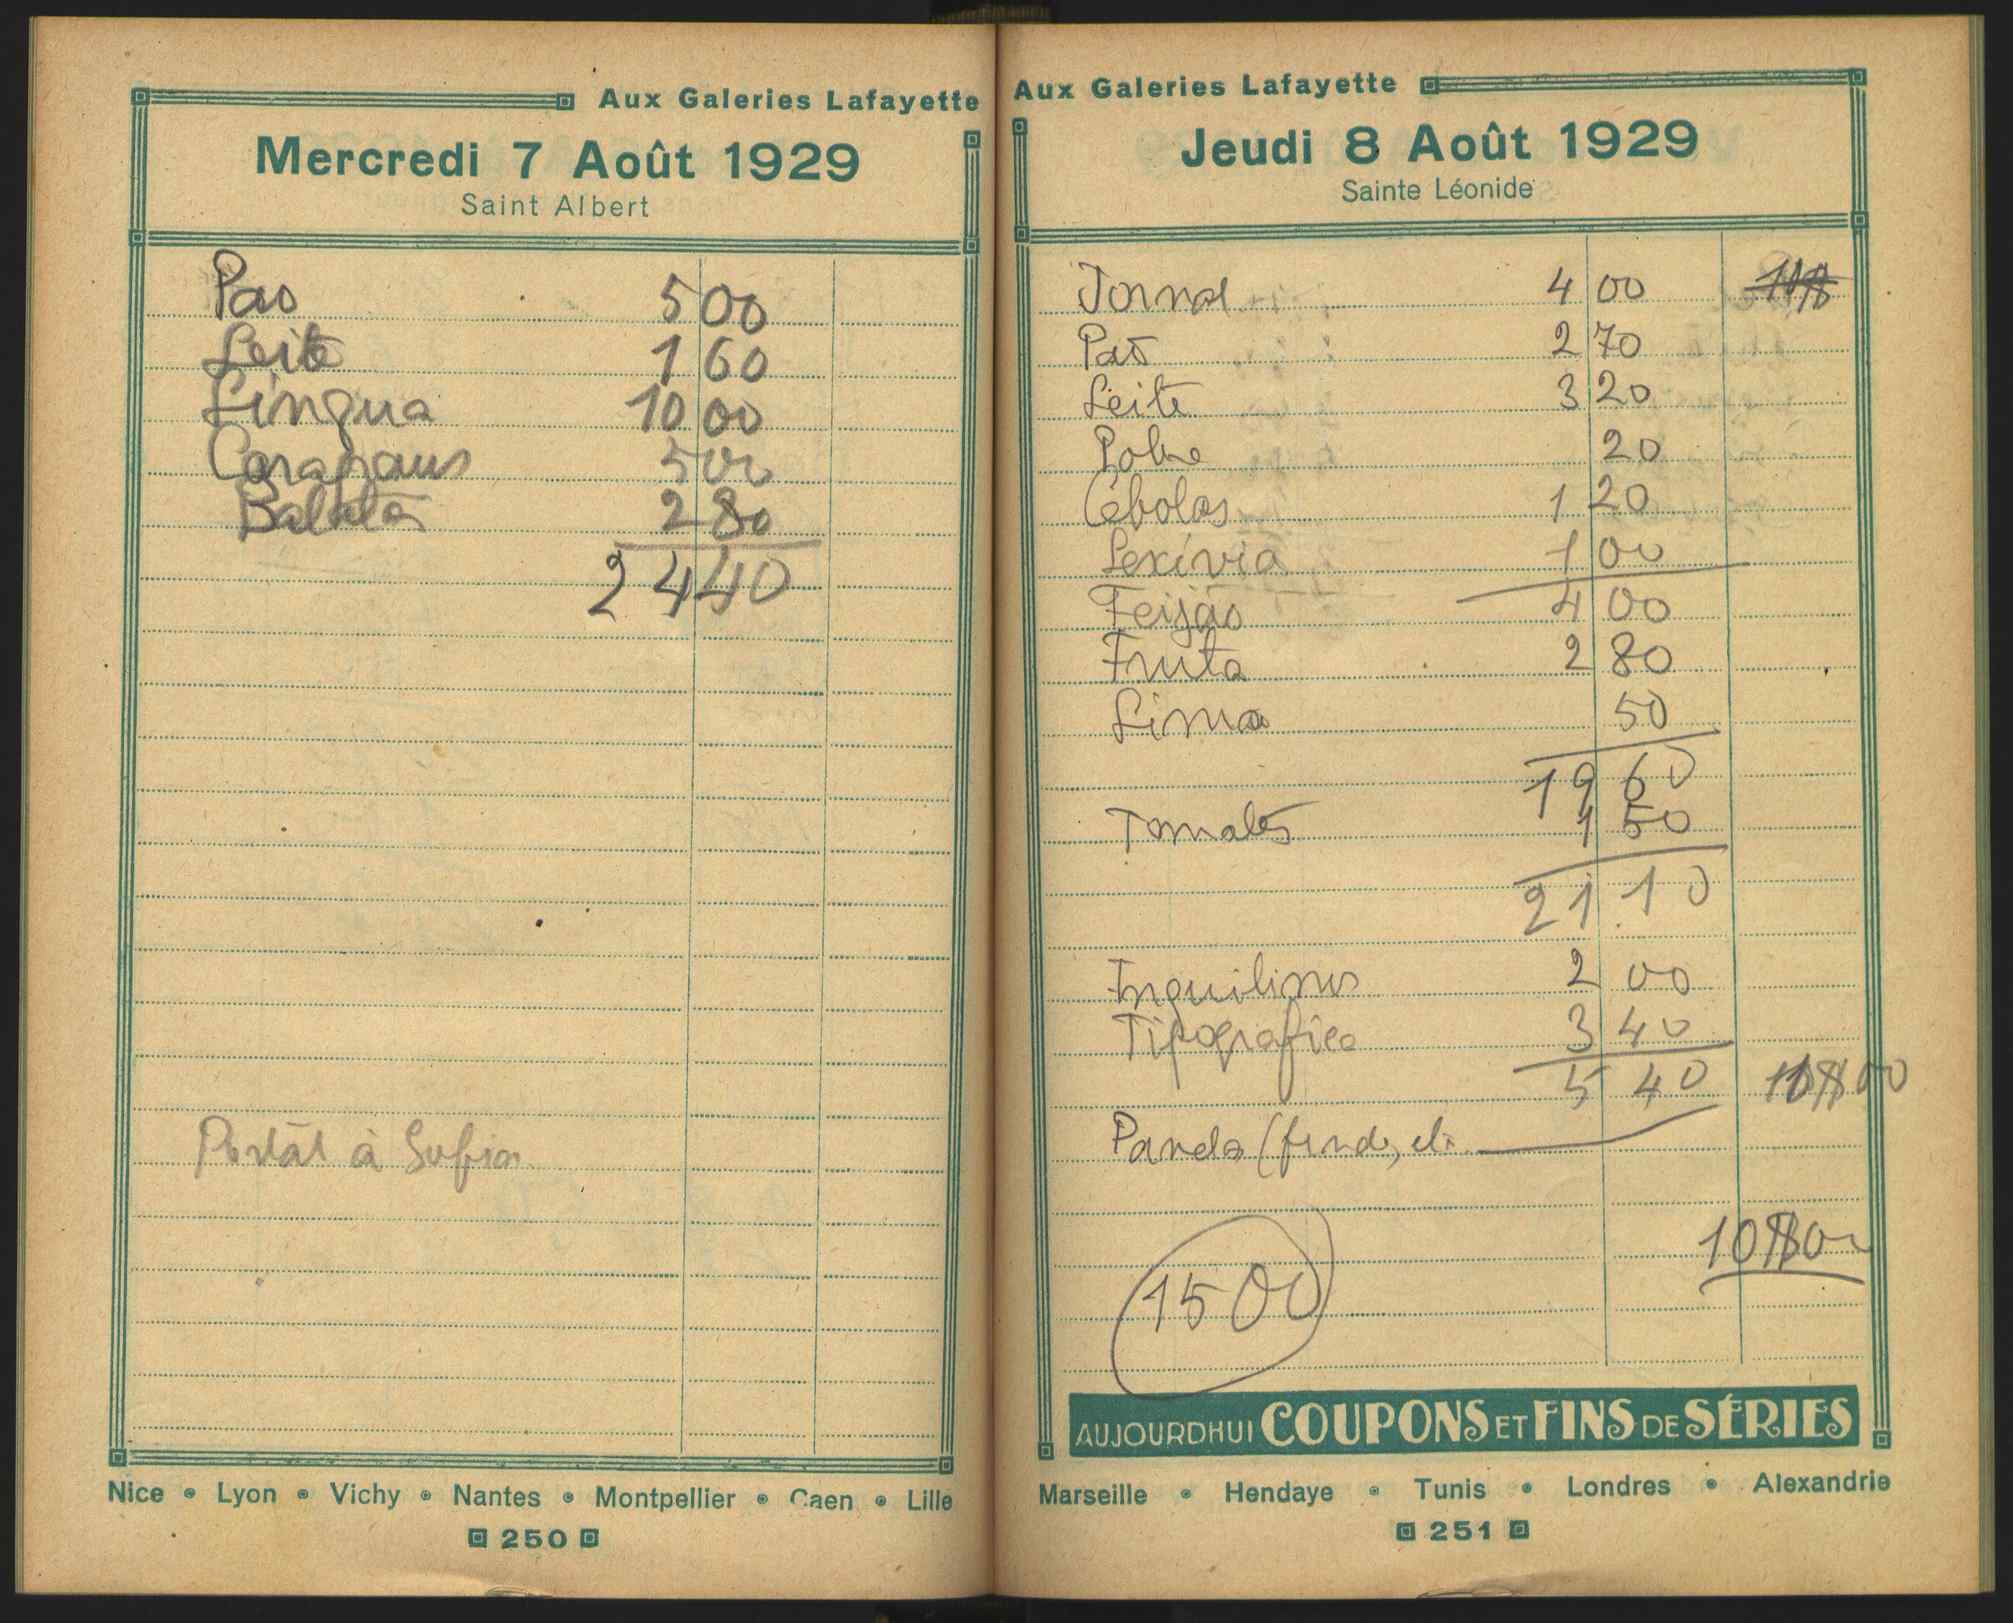 Aux Galeries Lafayette
Mercredi 7 Août 1929
Saint Albert
Pao 5 00
Leite 1 60
Lingua 10 00
Carapaus 5 00
Batatas 2 80
24 40
Postal à Sofia
Nice Lyon Vichy Nantes Montpellier Caen Lille
250
Aux Galeries Lafayette
Jeudi 8 Août 1929
Sainte Léonide
Jornal 4 00
Pão 2 70
Leite 3 20
Pobre 20
Cebolas 1 20
Lexívia 1 00
Feijão 4 00
Fruta 2 80
Lima 50
19 60
Tomates 1 50
21 10
Inquilinos 2 00
Tipografica 3 40
5 40
Panela (fundo, etc.
10$00
1500
AUJOURDHUI COUPONS ET FINS DE SÉRIES
Marseille Hendaye Tunis Londres Alexandrie
251